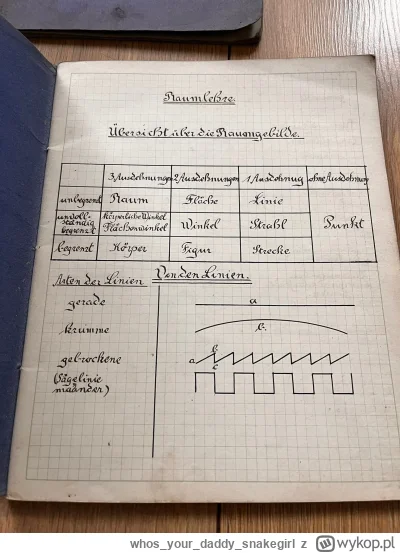 Raumlehre.
Übersicht über die Raumgebilde.
3 Ausdehnungen 2 Ausdehnungen 1 Ausdehnug ohne Ausdehnung
unbegrenzt Raum Fläche Linie
unvoll-
ständig
begrenzt
Körperliche Winkel
Flächenwinkel
Winkel Strahl Punkt
begrenzt Körper Figur Strecke
Von den Linien.
Arten der Linien
gerade a
krumme b.
gebrochene a b c
(Sägelinie
mäander)
whos_your_daddy_snakegirl z wykop.pl